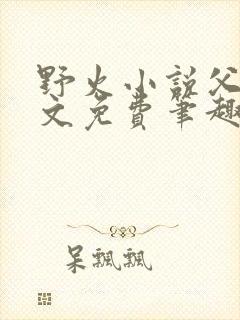 野火小说父
文免费笔趣
呆飘飘